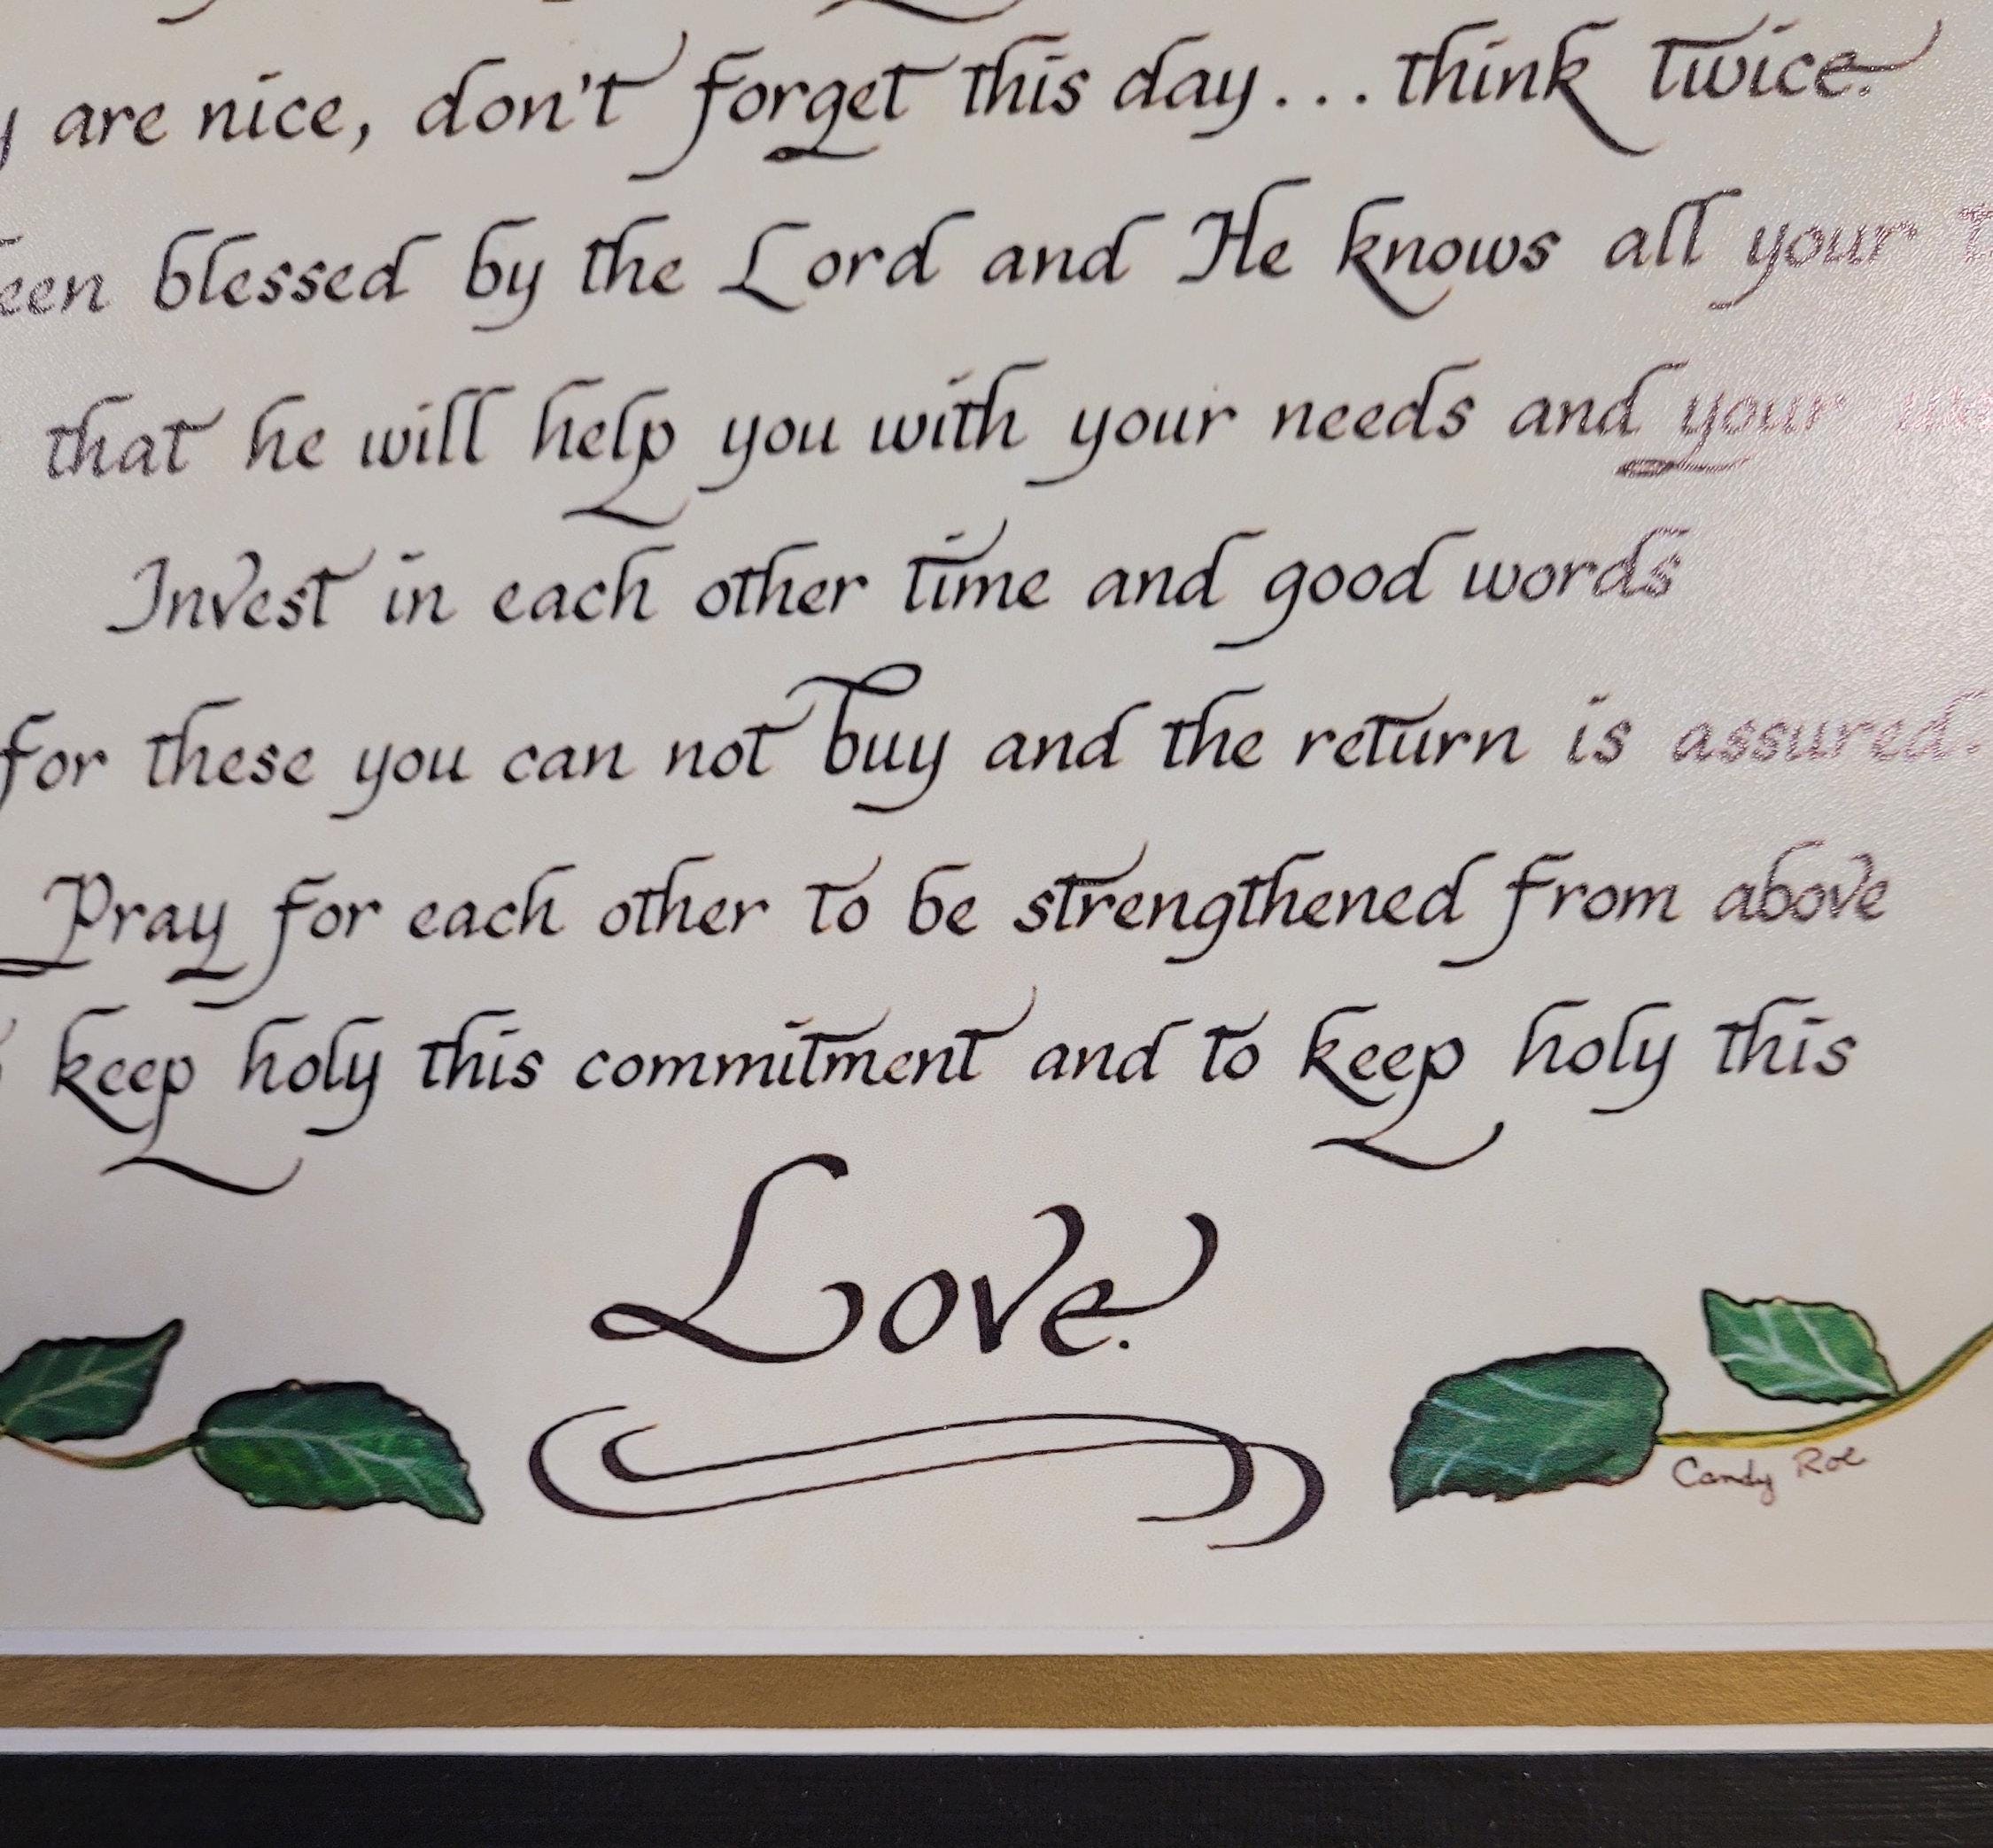 are nice, don't forget this day... think twice.
blessed by the Lord and He knows all your
that he will help you with your needs and your
Invest in each other time and good words
for these you can not buy and the return is assured.
Pray for each other to be strengthened from above
keep holy this commitment and to keep holy this
Love.
Candy Roe